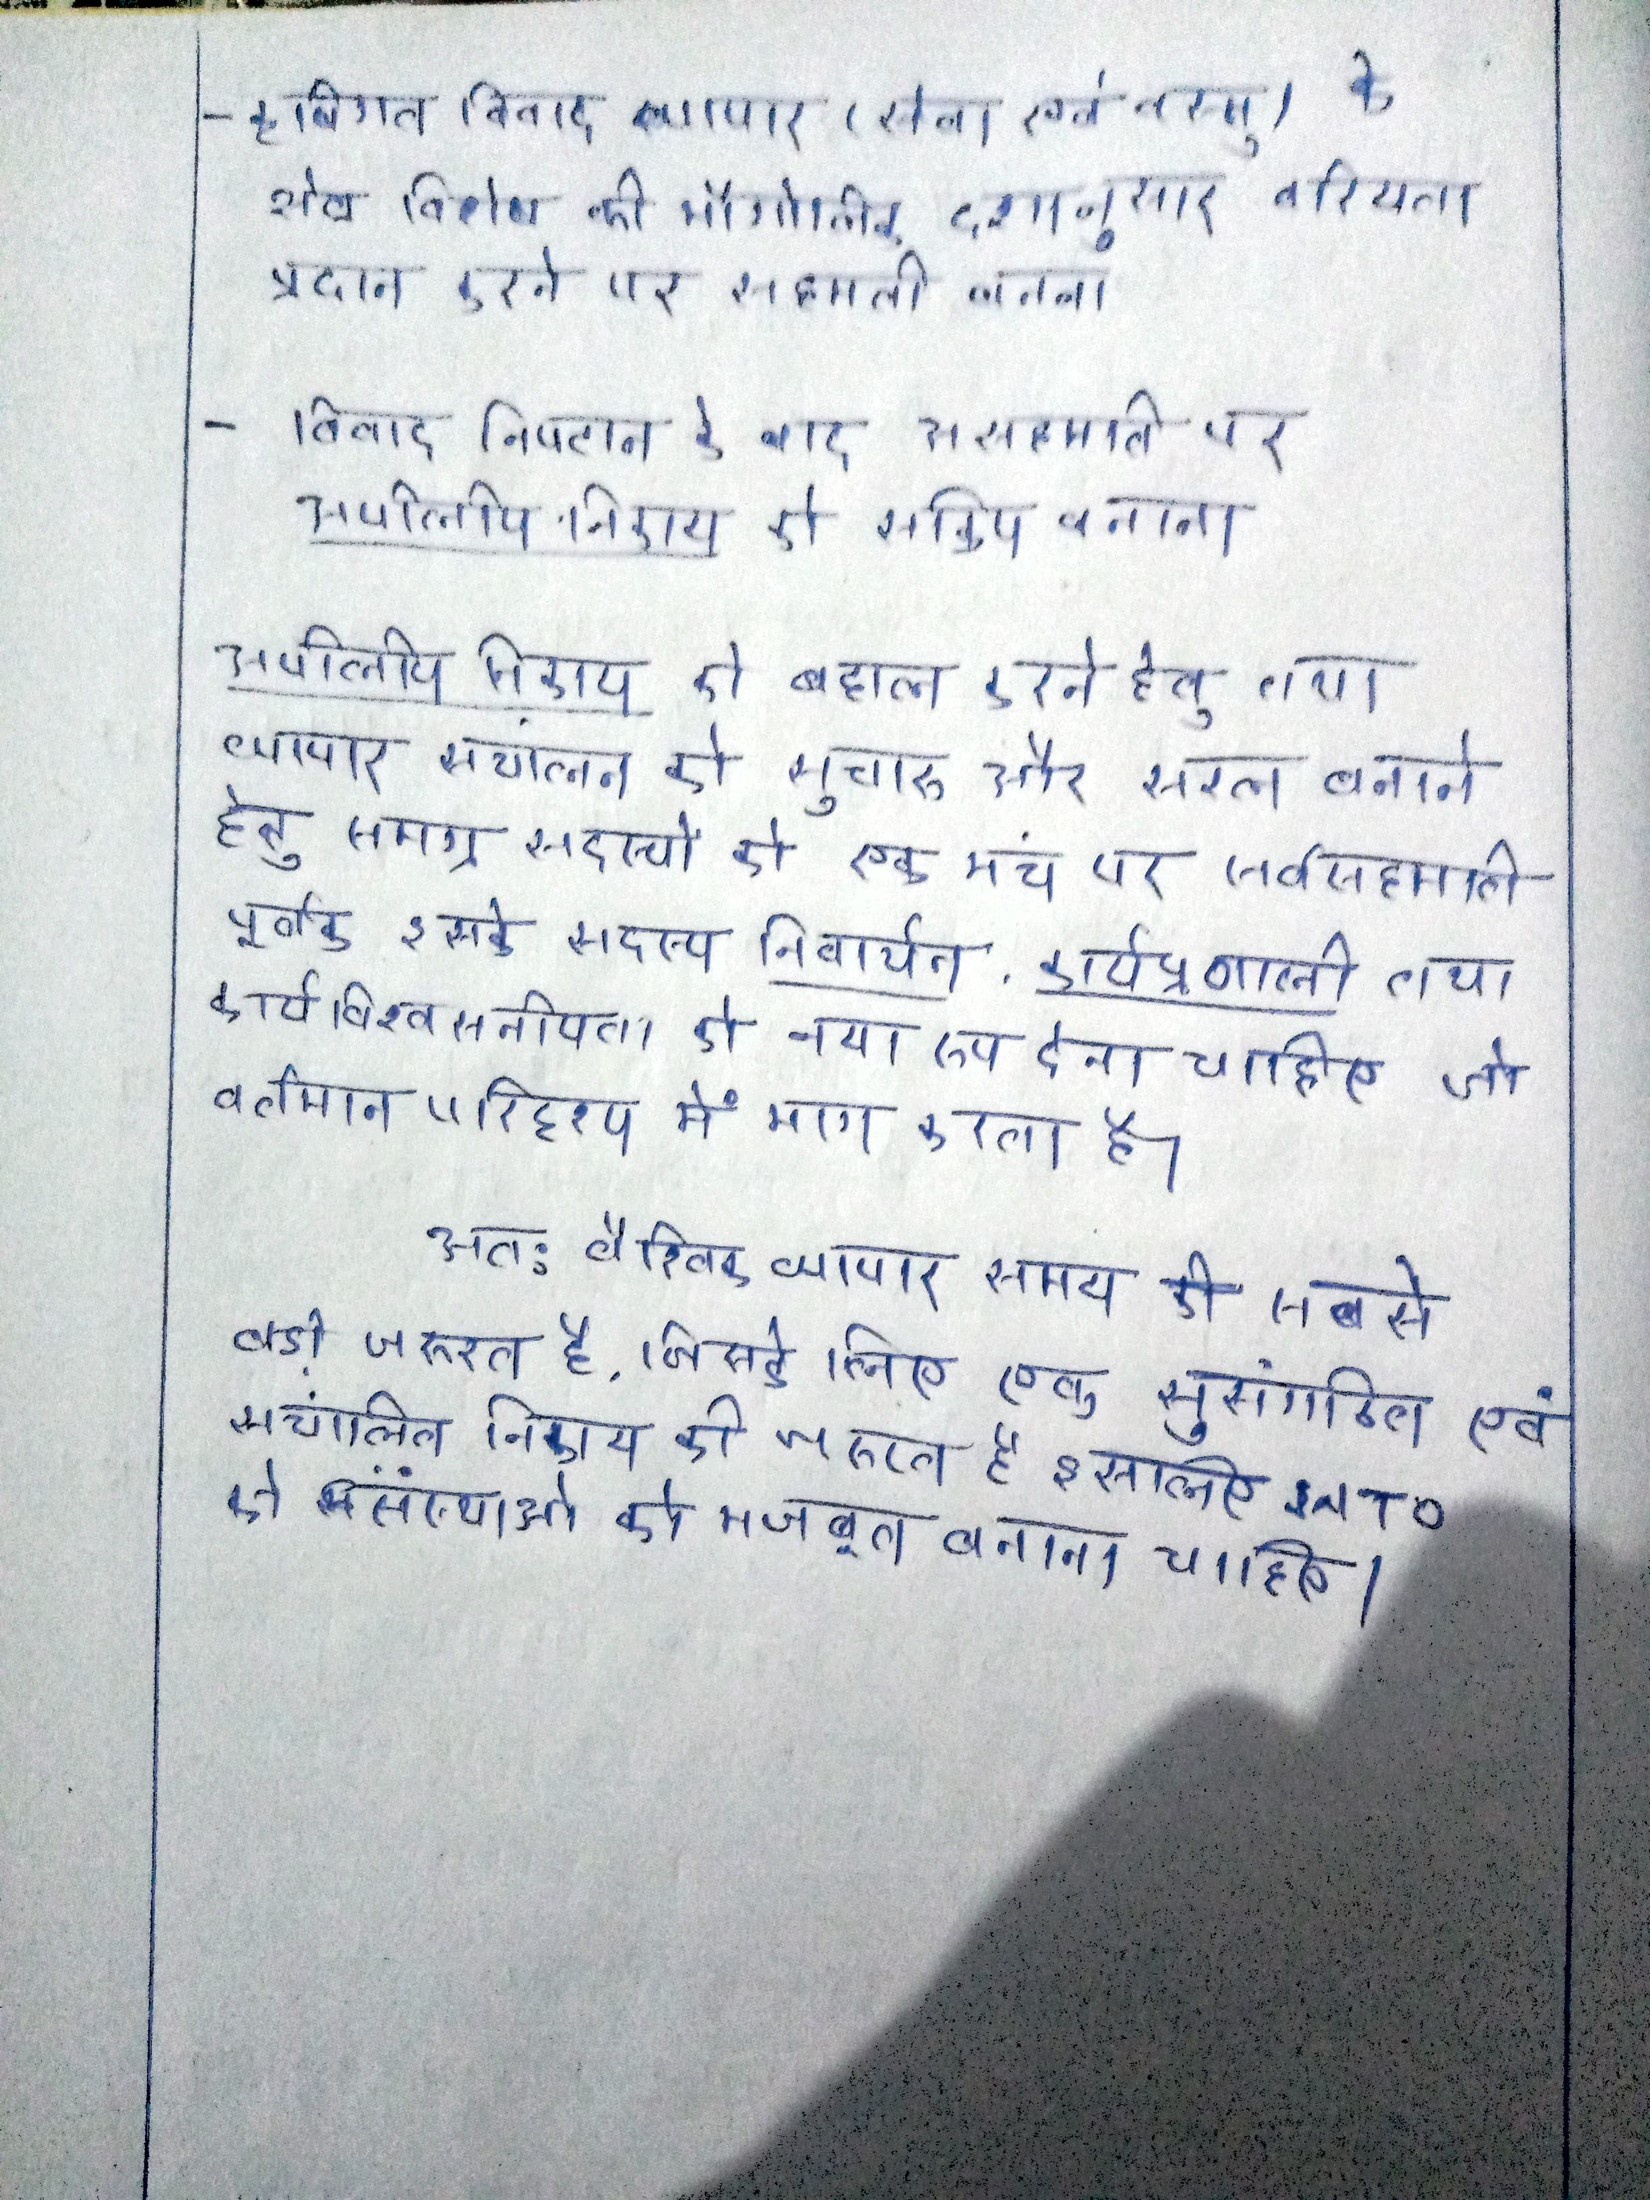 - कृषिगत विवाद व्यापार (सेवा एवं वस्तु) के
क्षेत्र विशेष की भौगोलिक दशानुसार वरियता
प्रदान करने पर सहमती बनना
- विवाद निपटान के बाद असहमति पर
अपीलीय निकाय को सक्रिय बनाना
अपीलीय निकाय को बहाल करने हेतु तथा
व्यापार संचालन को सुचारू और सरल बनाने
हेतु समग्र सदस्यों को एक मंच पर सर्वसहमति
पूर्वक इसके सदस्य निवार्चन, कार्यप्रणाली तथा
कार्य विश्वसनीयता को नया रुप देना चाहिए जो
वर्तमान परिदृश्य में माग करता है।
अतः वैश्विक व्यापार समय की सबसे
बड़ी जरूरत है, जिसके लिए एक सुसंगठित एवं
सचांलित निकाय की जरूरत है इसलिए WTO
को संस्थाओं को मजबूत बनाना चाहिए।